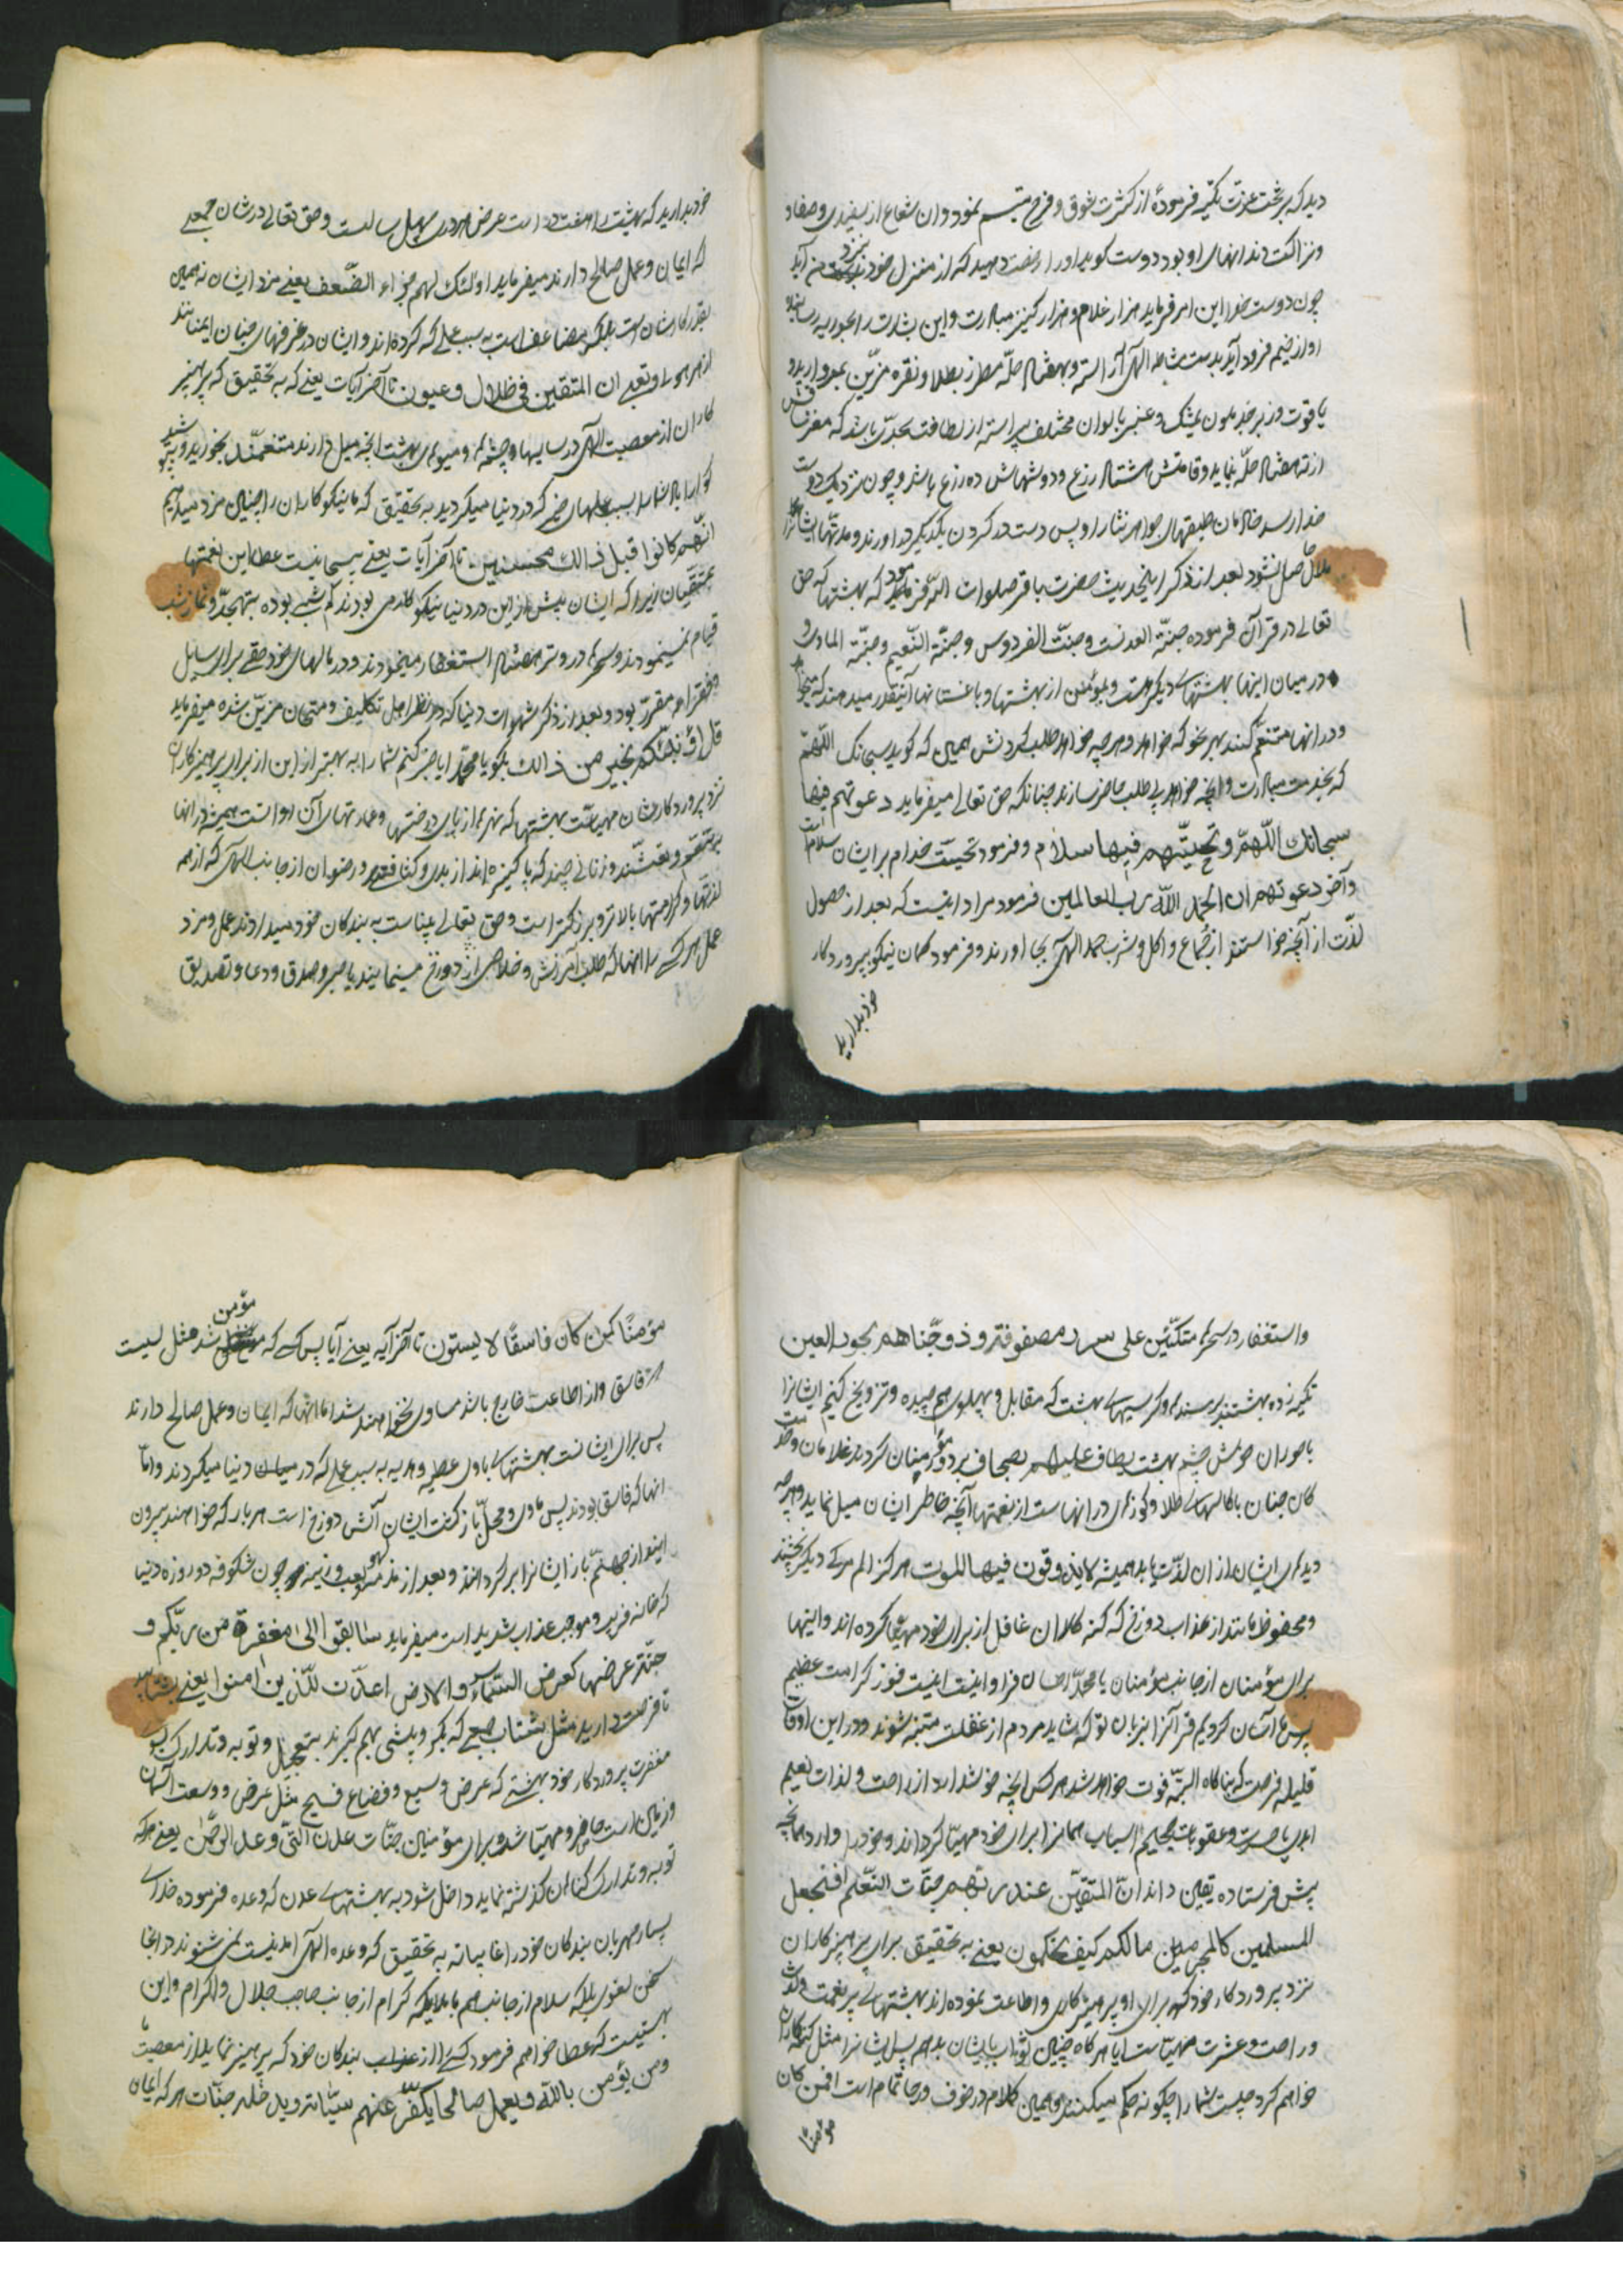 دید که بر تخت عزت تکیه فرموده از کثرت شوق و فرح تبسم نمود وان شعاع از سفیدی و صفا و
ونزاکت دندانهای او بود دوست کوید اورا رخصت دهید که از منزل خود بنزد من آید
چون دوست خدا این امر فرماید هزار غلام و هزار کنیز مبادرت و این بشارت را بحوریه رسانند
او از خیمه فرود آید بدست مشاطه الهی آراسته و بهفتاد حلّه مطرز بطلا و نقره مزیّن بمروارید و
یاقوت وزبرجد ملون بمشک و عنبر بالوان مختلف پیراسته از لطافت بحدّی باشد که مغز ساقش
از ته هفتاد حلّه نماید وقامتش هشتاد زرع ودوشهاش ده زرع باشد وچون نزدیک دوست
خدا رسد خادمان طبقهای جواهر نثار او پس دست در کردن یکدیکر دراورند و مدتها ایشانرا
ملال حاصل نشود بعد از ذکر این حدیث حضرت باقر صلوات الله فرمود که بهشتها که حق
تعالی در قرآن فرموده جنّة العدنست وجنّت الفردوس وجنّة النّعیم وجنّة الماوی و
در میان اینها بهشتهای دیکر هست و بمؤمن از بهشتها وباغستانها آنقدر میدهند که میخواهد
ودرانها متنعّم کنند بهر نحو که خواهد وهرچه خواهد طلب کردنش همین که کوید سبحانک اللّهمّ
که بخدمت مبادرت وآنچه خواهد بی طلب حاضر سازند چنانکه حق تعالی میفرماید دعوتهم فیها
سبحانک اللّهمّ وتحیّتهم فیها سلام وفرمود تحیّت خدام بر ایشان سلام است
وآخر دعوتهم ان الحمد للّه رب العالمین فرمود مراد اینست که بعد از حصول
لذّت از آنچه خواستند از جماع و اکل و شرب حمد الهی بجا اورند وفرمود کمان نیکو بپروردکار
خود بدارید
خود بدارید که بهشت را هفت در است عرض هر در چهل سالست وحق تعالی در شان جمعی
که ایمان وعمل صالح دارند میفرماید اولئک لهم جزاء الضّعف یعنی مزد ایشان نه همین
بقدر کارشان است بلکه مضاعف است به سبب عملی که کرده اند و ایشان در غرفهای جنان ایمنانند
از هر هولی وتعبی ان المتقین فی ظلال وعیون تا آخر آیات یعنی که به تحقیق که پرهیز
کاران از معصیت الهی در سایها وچشمها ومیوهای بهشت آنچه میل دارند متنعمند بخورید وبنوشید
کوارا باد شما را بسبب عملهای خیر که در دنیا میکردید به تحقیق که ما نیکو کاران را چنین مزد میدهیم
انّهم کانوا قبل ذالک محسنین تا آخر آیات یعنی
متّقیان زیرا که ایشان پیش از این در دنیا نیکو کار می بودند کم شبی بوده بتهجّد ونماز شب
قیام نمینمودند وسحرها در وتر هفتاد استغفار میخواندند ودر مالهای خود حقّی برای سایل
وفقرا مقرّر بود وبعد از ذکر شهوات دنیا که در نظر اهل تکالیف ومتحان مزیّن شده میفرماید
قل اؤنبّئکم بخیر من ذالک بکو یا محمّد ایا خبر کنم شما را به بهتر از این از برای پرهیزکاران
نزد پروردکارشان مهیاست بهشتها که نهرها از پای درختها وعمارتهای آن روانست همیشه درانها
وزنانی چند که پاکیزه اند از بدی وکثافت ورضوان از جانب الهی که از همه
لذتها وکرامتها بالاتر وبزرکتر است وحق تعالی بیناست به بندکان خود میداند عمل ومزد
عمل هر کسی را انها که طلب آمرزش وخلاصی از دوزخ مینمایند با صبر وصدق ودعا وتصدیق
واستغفار در سحرها متکئین علی سرر مصفوفة وزوّجناهم بحور العین
تکیه زده بهشتند بر مسندها وکرسیهای بهشت که مقابل وپهلوی هم چیده وتزویج کنیم ایشانرا
با حوران خوش چشم بهشت یطاف علیهم بصحاف بر دور مؤمنان کردند غلامان وخدمت
کان جنان با کاسهای طلا وکوزهای درانهاست از نعمتها آنچه خاطر ایشان میل نماید وهرچه
دیدهای ایشان از ان لذّت یابد همیشه لا یذوقون فیها الموت هرکز الم مرک دیکر نچشند
ومحفوظ مانند از عذاب دوزخ که کنه کاران غافل از برای خود مهیّا کرده اند واینها
برای مؤمنان از جانب مؤمنان یا محمّد احسان فراوانیست اینست فوز کرامت عظیم
پس ما آسان کردیم قرآنرا بزبان تو که شاید مردم از غفلت متنبّه شوند ودر این اوقات
قلیله فرصت که بناکاه البتّه فوت خواهد شد هر کس آنچه خوش دارد از راحت ولذات نعیم
ابدی یا حسرت وعقوبات جحیم اسباب همانرا برای خود مهیّا کرداند وخود را وارد همانچه
پیش فرستاده یقین داند انّ المتقین عند ربّهم جنّات النّعیم افنجعل
المسلمین کالمجرمین مالکم کیف تحکمون یعنی به تحقیق برای پرهیز کاران
نزد پروردکار خود که برای او پرهیزکاری واطاعت نموده اند بهشتهای پر نعمت ولذت
وراحت وعشرت مهیّاست ایا هرکاه چنین ثواب بایشان بدهم پس ایشانرا مثل کنه کاران
خواهم کرد چیست شما را چکونه حکم میکنید وهمین کلام در خوف ورجا تمام است افمن کان
مؤمنا
مؤمنًا کمن کان فاسقًا لا یستون تا آخر آیه یعنی آیا پس کسی که مؤمن باشد مثل کسیست
که فاسق واز اطاعت خارج باشد مساوی نخواهند شد اما انها که ایمان وعمل صالح دارند
پس برای ایشانست بهشتهای باوی عطیه وهدیه به سبب عملی که در میان دنیا میکردند وامّا
انها که فاسق بودند پس ماوی ومحلّ بازکشت ایشان آتش دوزخ است هر بار که خواهند بیرون
ایند از جهنّم باز ایشانرا برکردانند وبعد از مذمّت لهو ولعب وزینت چون شکوفه دو روزه دنیا
که خانه فریب وموجب عذاب شدید است میفرماید سابقوا الی مغفرة من ربّکم و
جنّة عرضها کعرض السّماء والارض اعدّت للّذین امنوا یعنی بشتابید
تا فرصت دارید مثل شتاب جمعی که بکرو وپیشی بهم کیرند بتعجیل وتوبه وتدارک بسوی
مغفرت پروردکار خود وبهشتی که عرض وسیع وفضاء فسیح مثل عرض ووسعت آسمان
وزمین است حاضر ومهیّا شده برای مؤمنین جنّات عدن الّتی وعد الرّحمن یعنی هرکه
توبه وتدارک کناهان کذشته نماید داخل شود به بهشتهای عدن که وعده فرموده خدای
بسیار مهربان بندکان خود را غایبانه به تحقیق که وعده الهی امدنیست نمی شنوند درانجا
سخن لغوی بلکه سلام از جانب هم یا ملایکه کرام از جانب صاحب جلال واکرام واین
بهشتیست که عطا خواهم فرمود کسی را از بندکان خود که پرهیز نماید از معصیت ما
ومن یؤمن باللّه ویعمل صالحا یکفّر عنهم سیّئاته ویدخله جنّات هر که ایمان